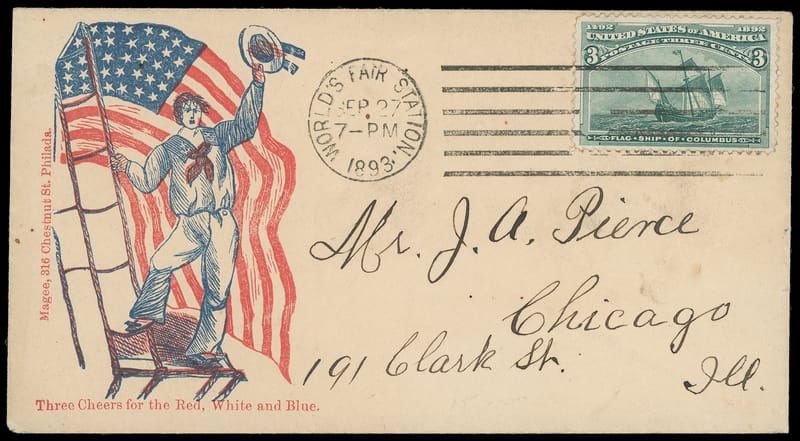 1492 1892
UNITED STATES OF AMERICA
POSTAGE THREE CENTS
3 3
FLAG - SHIP - OF - COLUMBUS
WORLD'S FAIR STATION.
SEP 27
7-PM
1893.
Magee, 316 Chestnut St. Philada.
Mr. J. A. Pierce
Chicago
191 Clark St.
Ill.
Three Cheers for the Red, White and Blue.